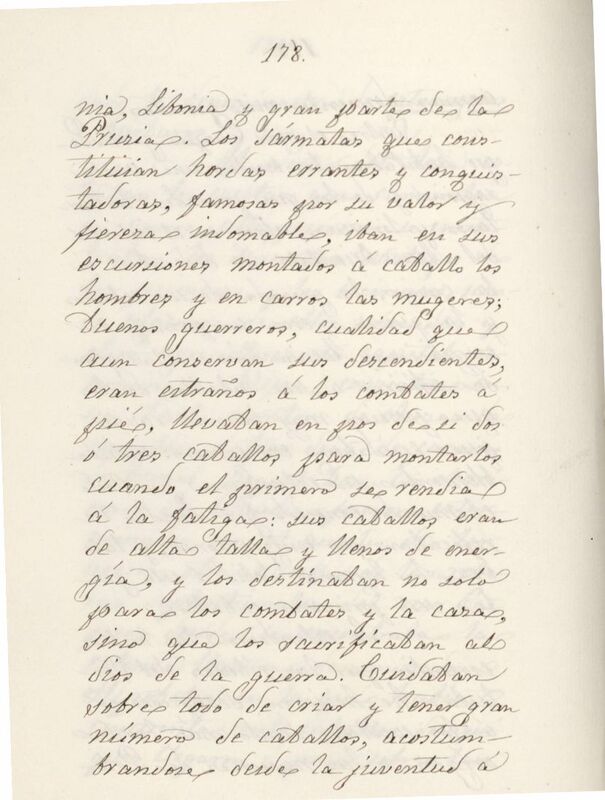 178.
nia, Libonia y gran parte de la
Prusia. Los Sármatas que cons-
tituían hordas errantes y conquis-
tadoras, famosas por su valor y
fiereza indomable, iban en sus
escursiones montados á caballo los
hombres y en carros las mugeres;
buenos guerreros, cualidad que
aun conservan sus descendientes,
eran estraños á los combates á
pié, llevaban en pos de si dos
ó tres caballos para montarlos
cuando el primero se rendia
á la fatiga: sus caballos eran
de alta talla y llenos de ener-
gía, y los destinaban no solo
para los combates y la caza,
sino que los sacrificaban al
dios de la guerra. Cuidaban
sobre todo de criar y tener gran
número de caballos, acostum-
brandose desde la juventud á